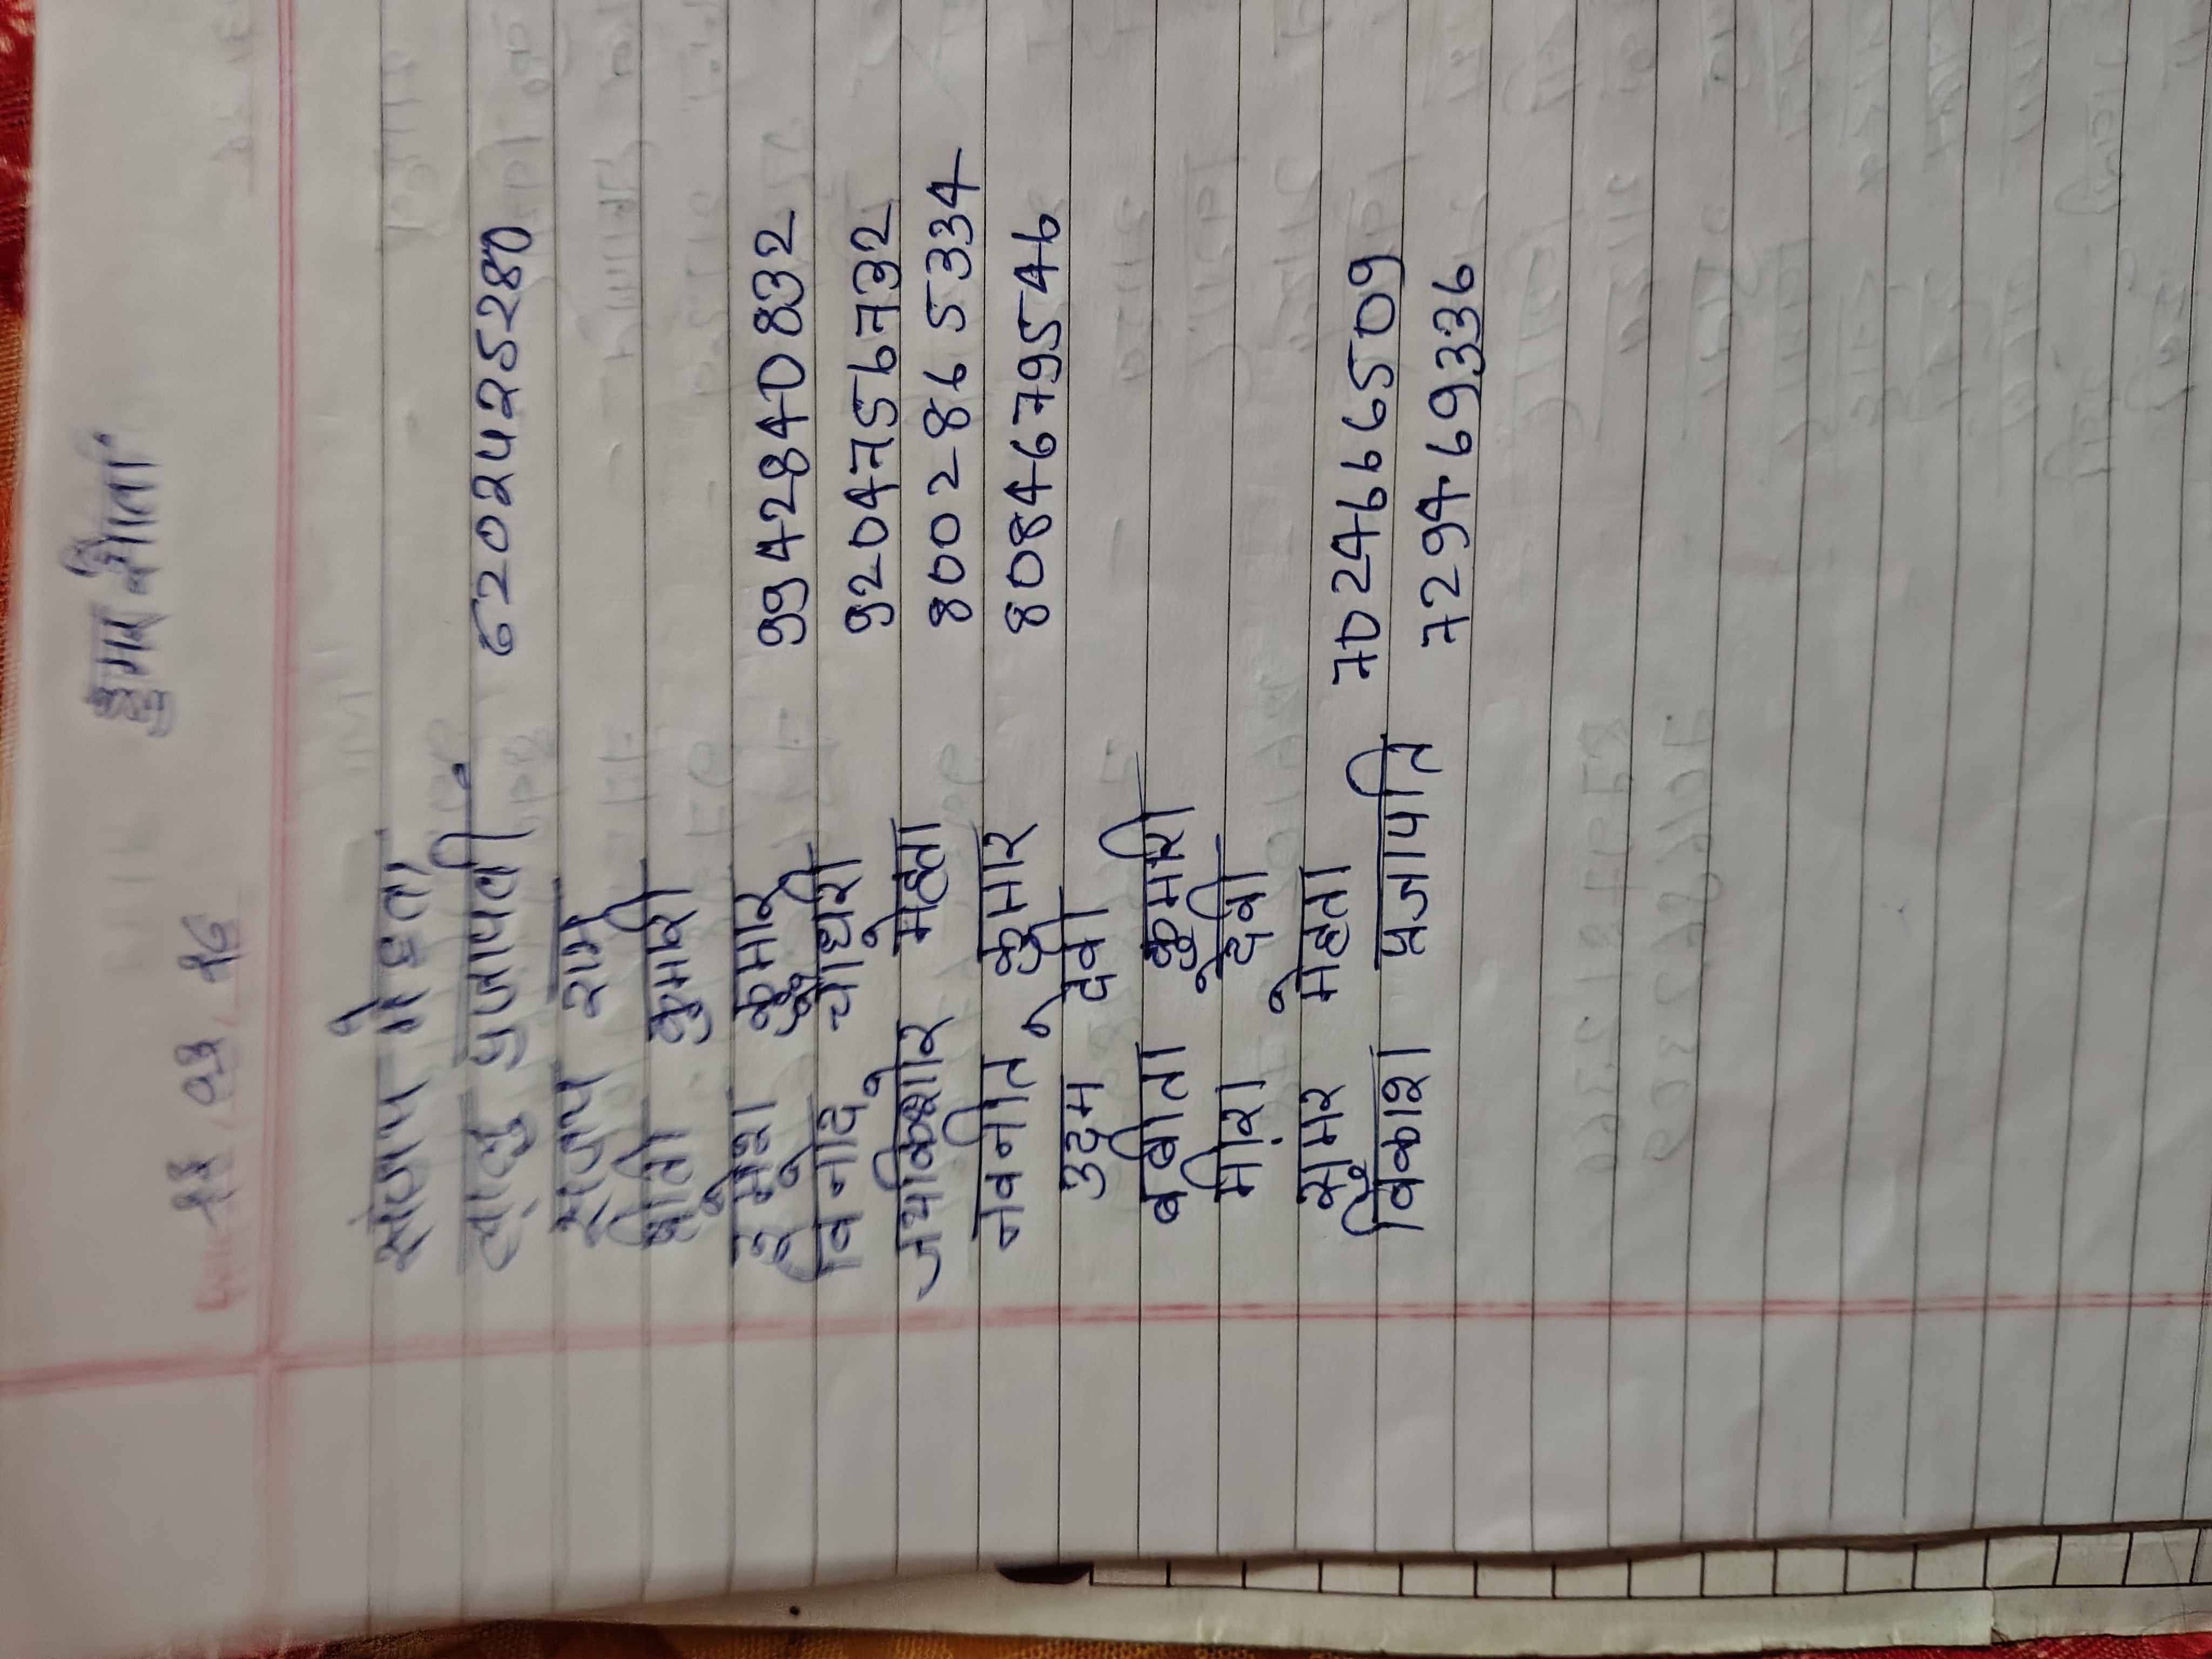 संजय मेहता
लालु प्रजापती 6202425280
सुजय राम
प्रीती कुमारी
हेमेश कुमार 9942840832
विनोद चौधरी 9204756732
जयकिशोर मेहता 8002865334
नवनीत कुमार 8084679546
उदम देवी
बबीता कुमारी
मीरा देवी
सुमर मेहता 7024666509
विकाश प्रजापति 729469336